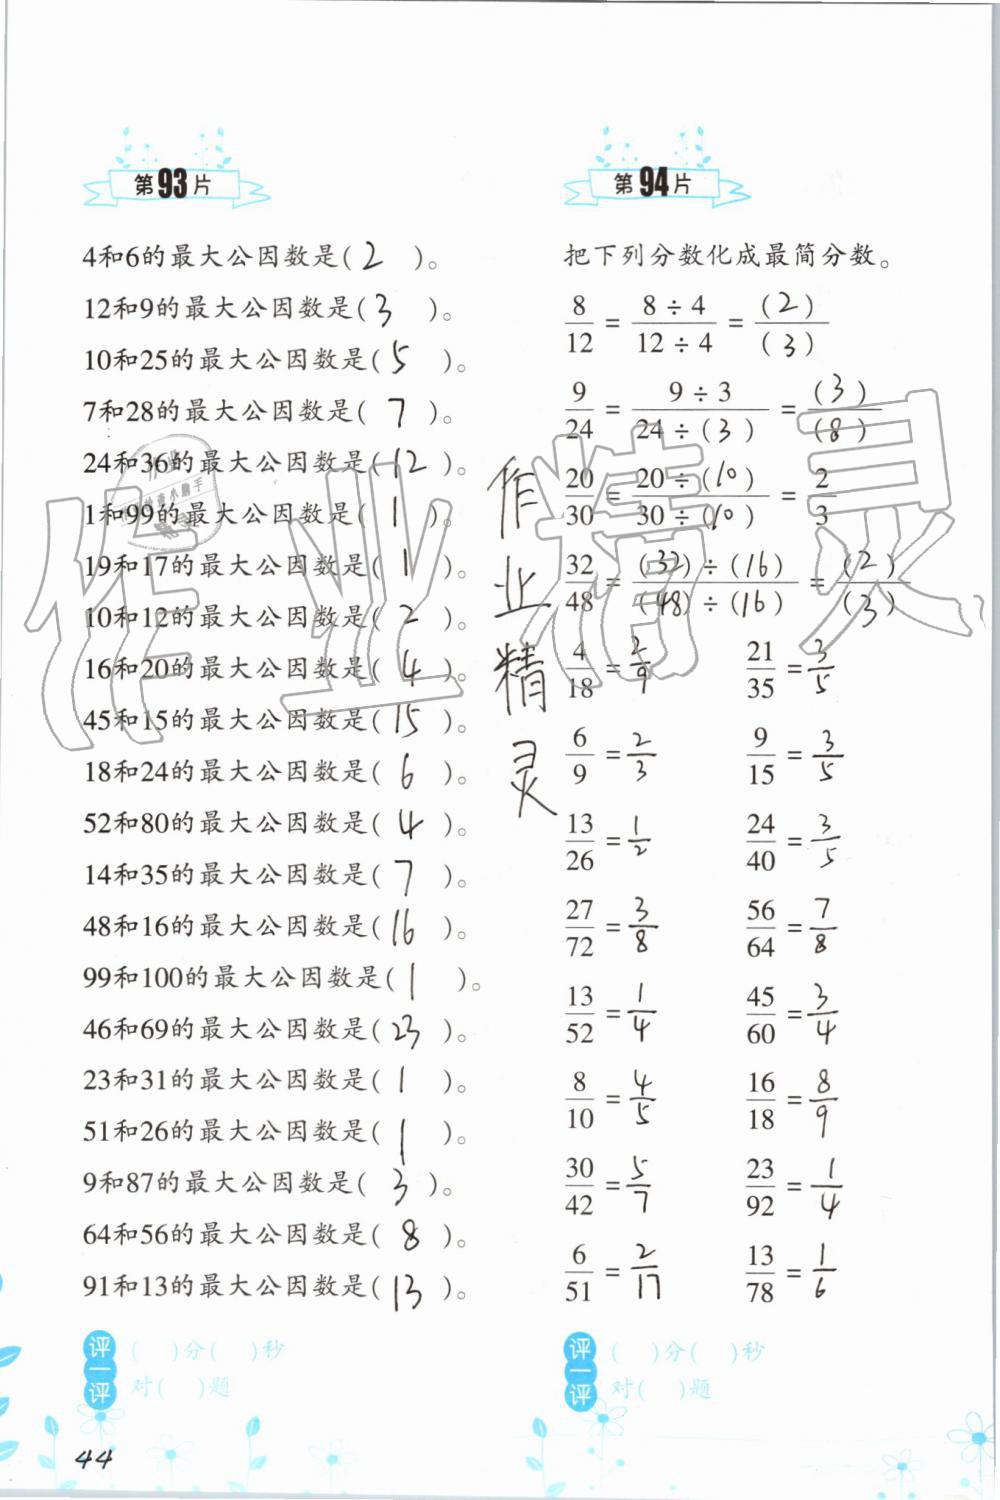 第93片
4和6的最大公因数是( 2 )。
12和9的最大公因数是( 3 )。
10和25的最大公因数是( 5 )。
7和28的最大公因数是( 7 )。
24和36的最大公因数是( 12 )。
1和99的最大公因数是( 1 )。
19和17的最大公因数是( 1 )。
10和12的最大公因数是( 2 )。
16和20的最大公因数是( 4 )。
45和15的最大公因数是( 15 )。
18和24的最大公因数是( 6 )。
52和80的最大公因数是( 4 )。
14和35的最大公因数是( 7 )。
48和16的最大公因数是( 16 )。
99和100的最大公因数是( 1 )。
46和69的最大公因数是( 23 )。
23和31的最大公因数是( 1 )。
51和26的最大公因数是( 1 )。
9和87的最大公因数是( 3 )。
64和56的最大公因数是( 8 )。
91和13的最大公因数是( 13 )。
评一评
( )分( )秒
对( )题
44
第94片
把下列分数化成最简分数。
8/12 = 8÷4/12÷4 = (2)/(3)
9/24 = 9÷3/24÷(3) = (3)/(8)
20/30 = 20÷(10)/30÷(10) = 2/3
32/48 = (32)÷(16)/(48)÷(16) = (2)/(3)
4/18 = 2/9 21/35 = 3/5
6/9 = 2/3 9/15 = 3/5
13/26 = 1/2 24/40 = 3/5
27/72 = 3/8 56/64 = 7/8
13/52 = 1/4 45/60 = 3/4
8/10 = 4/5 16/18 = 8/9
30/42 = 5/7 23/92 = 1/4
6/51 = 2/17 13/78 = 1/6
评一评
( )分( )秒
对( )题
作业精灵
作业精灵